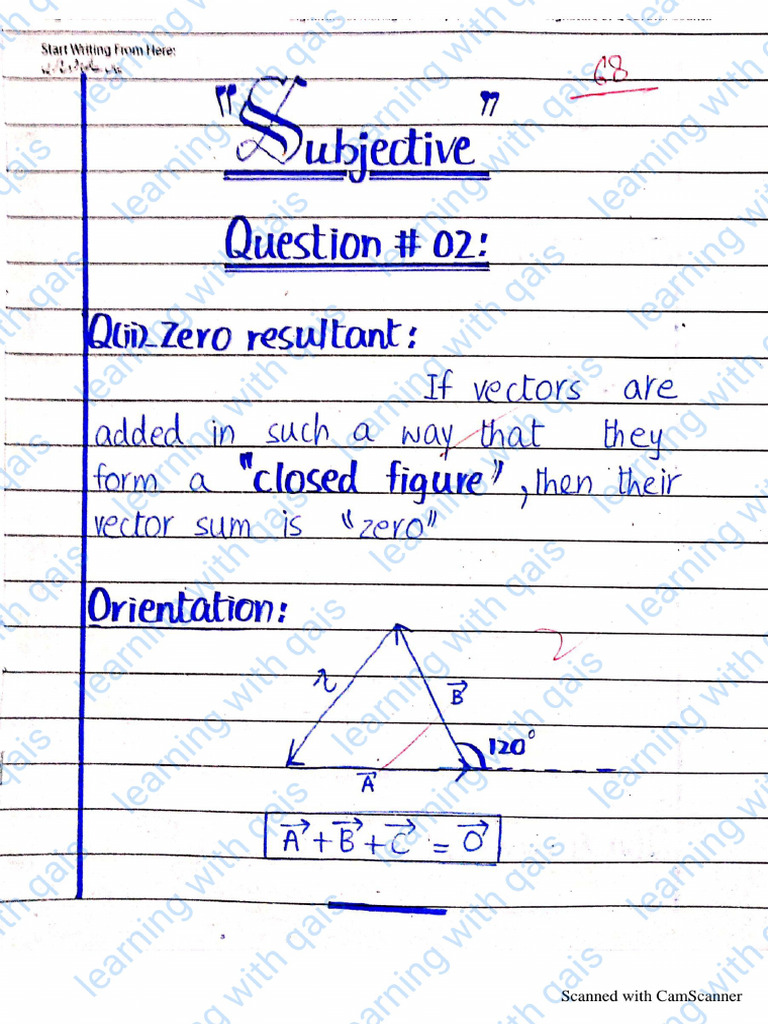 Start Writing From Here:
68
"Subjective"
Question # 02:
Q(ii)_Zero resultant:
If vectors are
added in such a way that they
form a "closed figure", then their
vector sum is "zero"
Orientation:
2
B
120°
A
A + B + C = O
Scanned with CamScanner
learning with qais